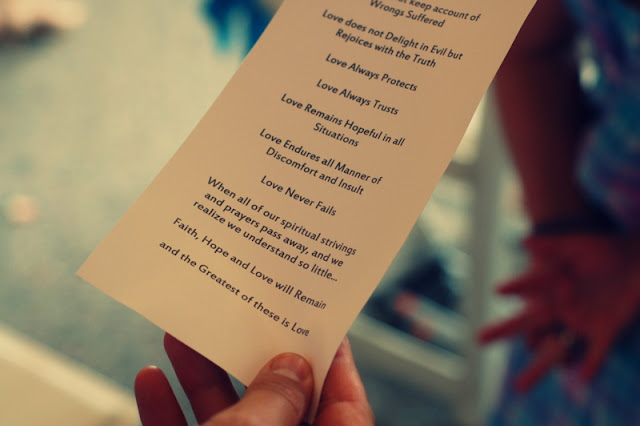 keep account of
Wrongs Suffered
Love does not Delight in Evil but
Rejoices with the Truth
Love Always Protects
Love Always Trusts
Love Remains Hopeful in all
Situations
Love Endures all Manner of
Discomfort and Insult
Love Never Fails
When all of our spiritual strivings
and prayers pass away, and we
realize we understand so little...
Faith, Hope and Love will Remain
and the Greatest of these is Love